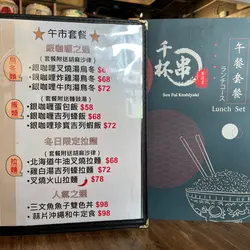 午市套餐
銀咖喱之選
(套餐附送胡麻沙律)
烏冬類
銀咖喱叉燒湯烏冬 $68
銀咖喱炸雞湯烏冬 $68
銀咖喱吉列湯烏冬 $72
(套餐附送麵豉湯)
飯類
銀咖喱蛋飯 $58
銀咖喱吉列豬扒飯 $68
銀咖喱珍寶吉列蝦飯 $72
冬日限定拉麵
(套餐附送胡麻沙律)
拉麵
北海道牛油叉燒拉麵 $68
雞白湯吉列豬扒拉麵 $72
叉燒火山拉麵 $78
人氣之選
三文魚魚子雙色丼 $98
蒜片沖繩和牛定食 $98
千杯串
Sen Pai Kushiyaki
午餐套餐
ランチコース
Lunch Set